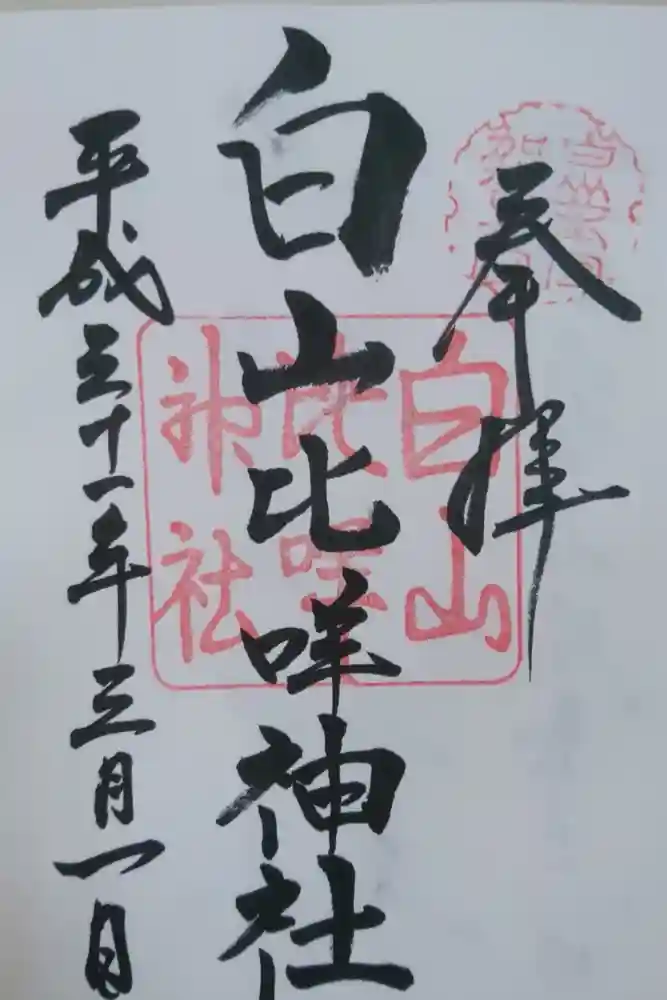 奉拝
白山比咩神社
平成三十一年三月一日
白山
比咩
神社